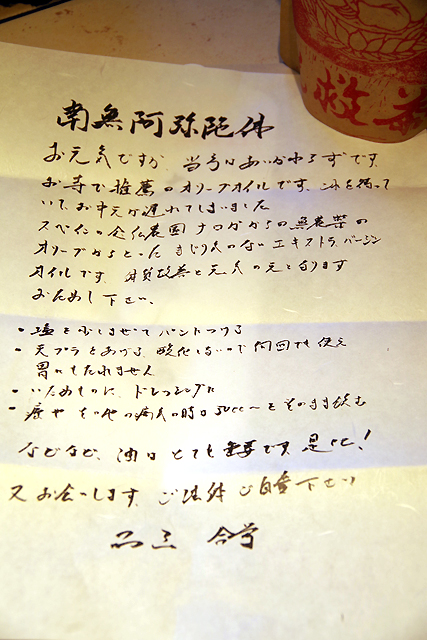 救
南無阿弥陀佛
お元気ですか 当寺はあいかわらずです
お寺で推薦のオリーブオイルです。これを待って
いて、お中元が遅れてしまいました
スペインの 農園 からの無農薬の
オリーブからとった まじり気のないエキストラバージン
オイルです。体質改善と元気の元となります
おためし下さい。
・塩を少しまぜて パンにつける
・天プラをあげる、酸化しないので何回でも使え
胃にもたれません
・いためものに、ドレッシングに
・癌や その他の病気の時は 50cc〜をそのまま飲む
などなど、油は とても重要です 是非!
又お会いします、ご法体 ご自愛下さい
合掌